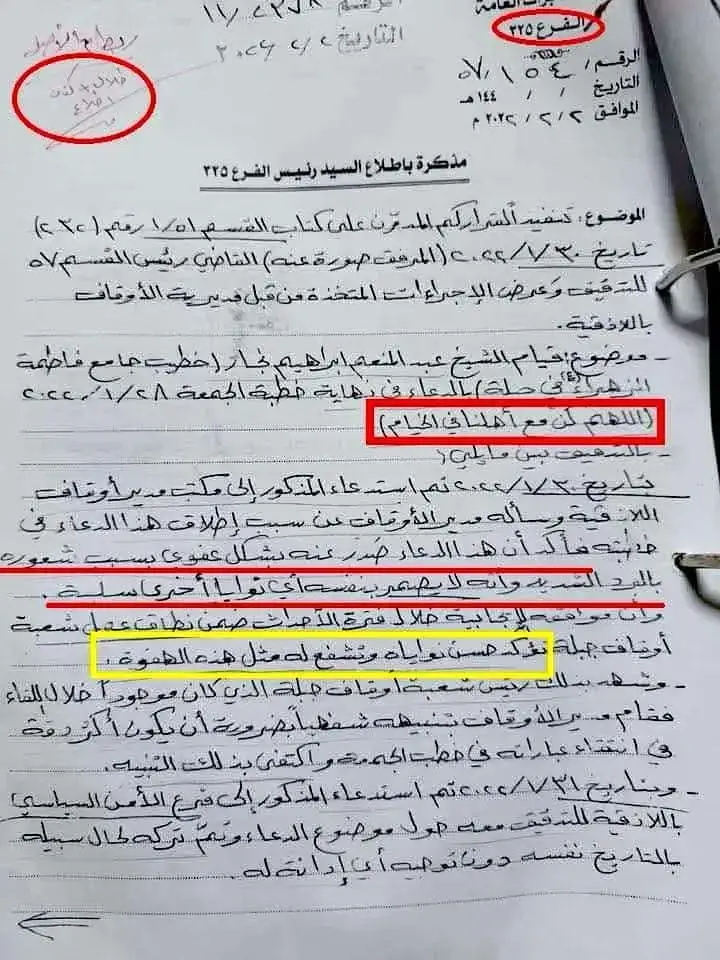 المخابرات العامة
الفرع ٢٢٥
الرقم / ١٥٤ / ٥٧
التاريخ / / ١٤٤ هـ
الموافق ٢ / ٢ / ٢٠٢٢ م
الرقم
التاريخ ٢ / ٢ / ٢٠٢٢
مذكرة باطلاع السيد رئيس الفرع ٢٢٥
الموضوع: تنفيذ القراركم المدون على كتاب القسم ١/٥١ رقم (٢٣٢)
تاريخ ٢٠٢٢/١/٣٠ (المرفق صورة عنه) القاضي رئيس القسم ٥٧
للتدقيق وعرض الإجراءات المتخذة من قبل مديرية الأوقاف
باللاذقية.
- موضوع: قيام الشيخ عبد المنعم ابراهيم نجار (خطيب جامع فاطمة
الزهراء (ع) في جبلة) بالدعاء في نهاية خطبة الجمعة ٢٠٢٢/١/٢٨
(اللهم كن مع أهلنا في الخيام)
- بالتدقيق تبين مايلي:
بتاريخ ٢٠٢٢/١/٣٠ تم استدعاء المذكور إلى مكتب مدير أوقاف
اللاذقية وسأله مدير الأوقاف عن سبب إطلاق هذا الدعاء في
خطبته فأكد أن هذا الدعاء صدر عنه بشكل عفوي بسبب شعوره
بالبرد الشديد وأنه لا يضمر بنفسه أي نوايا أخرى سلبية.
وأن مواقفه الإيجابية خلال فترة الأحداث ضمن نطاق عمل شعبة
أوقاف جبلة تؤكد حسن نواياه وتشفع له مثل هذه الهفوة.
- وشهد بذلك رئيس شعبة أوقاف جبلة الذي كان موجوداً خلال اللقاء
فقام مدير الأوقاف بتنبيهه شفهياً بضرورة أن يكون أكثر دقة
في انتقاء عباراته في خطب الجمعة واكتفى بذلك التنبيه.
- وبتاريخ ٢٠٢٢/١/٣١ تم استدعاء المذكور إلى فرع الأمن السياسي
باللاذقية للتدقيق معه حول موضوع الدعاء وتم تركه لحال سبيله
بالتاريخ نفسه دون توجيه أي إدانة له.